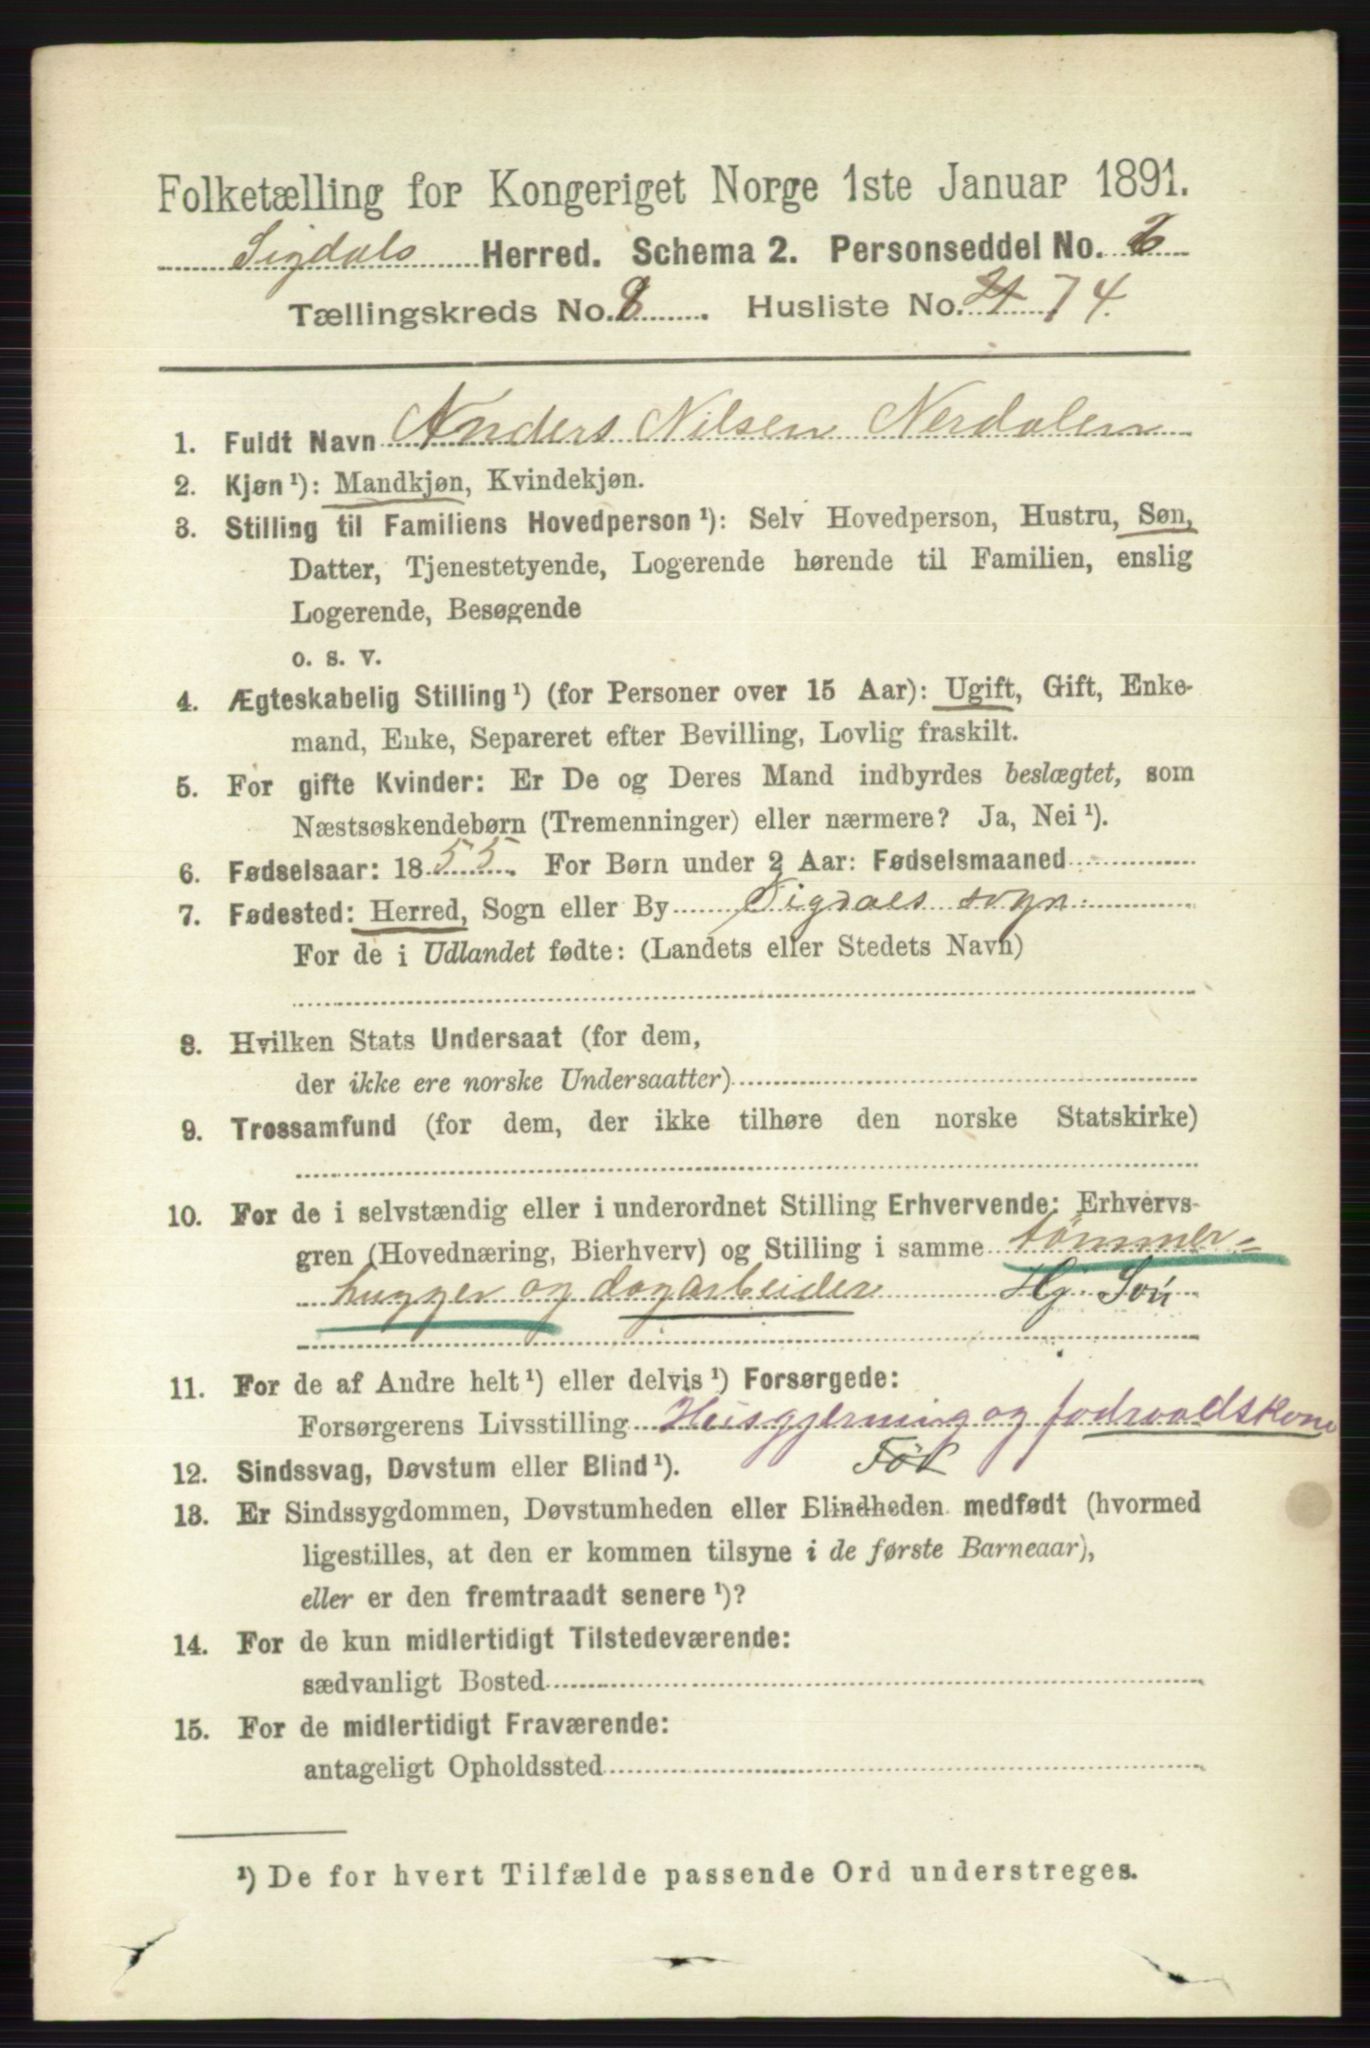 Folketælling for Kongeriget Norge 1ste Januar 1891.
Sigdals Herred. Schema 2. Personseddel No. 2
Tællingskreds No. 8. Husliste No. 74.
1. Fuldt Navn Anders Nilsen Nerdalen
2. Kjøn ¹): Mandkjøn, Kvindekjøn.
3. Stilling til Familiens Hovedperson ¹): Selv Hovedperson, Hustru, Søn,
Datter, Tjenestetyende, Logerende hørende til Familien, enslig
Logerende, Besøgende
o. s. v.
4. Ægteskabelig Stilling ¹) (for Personer over 15 Aar): Ugift, Gift, Enke-
mand, Enke, Separeret efter Bevilling, Lovlig fraskilt.
5. For gifte Kvinder: Er De og Deres Mand indbyrdes beslægtet, som
Næstsøskendebørn (Tremenninger) eller nærmere? Ja, Nei ¹).
6. Fødselsaar: 1855. For Børn under 2 Aar: Fødselsmaaned
7. Fødested: Herred, Sogn eller By Sigdals sogn.
For de i Udlandet fødte: (Landets eller Stedets Navn)
8. Hvilken Stats Undersaat (for dem,
der ikke ere norske Undersaatter)
9. Trossamfund (for dem, der ikke tilhøre den norske Statskirke)
10. For de i selvstændig eller i underordnet Stilling Erhvervende: Erhvervs-
gren (Hovednæring, Bierhverv) og Stilling i samme tømmer=
hugger og dagarbeider Hj. Søn
11. For de af Andre helt ¹) eller delvis ¹) Forsørgede:
Forsørgerens Livsstilling Husgjerning og fodraadskone
12. Sindssvag, Døvstum eller Blind ¹).
13. Er Sindssygdommen, Døvstumheden eller Blindheden medfødt (hvormed
ligestilles, at den er kommen tilsyne i de første Barneaar),
eller er den fremtraadt senere ¹)?
14. For de kun midlertidigt Tilstedeværende:
sædvanligt Bosted
15. For de midlertidigt Fraværende:
antageligt Opholdssted
¹) De for hvert Tilfælde passende Ord understreges.